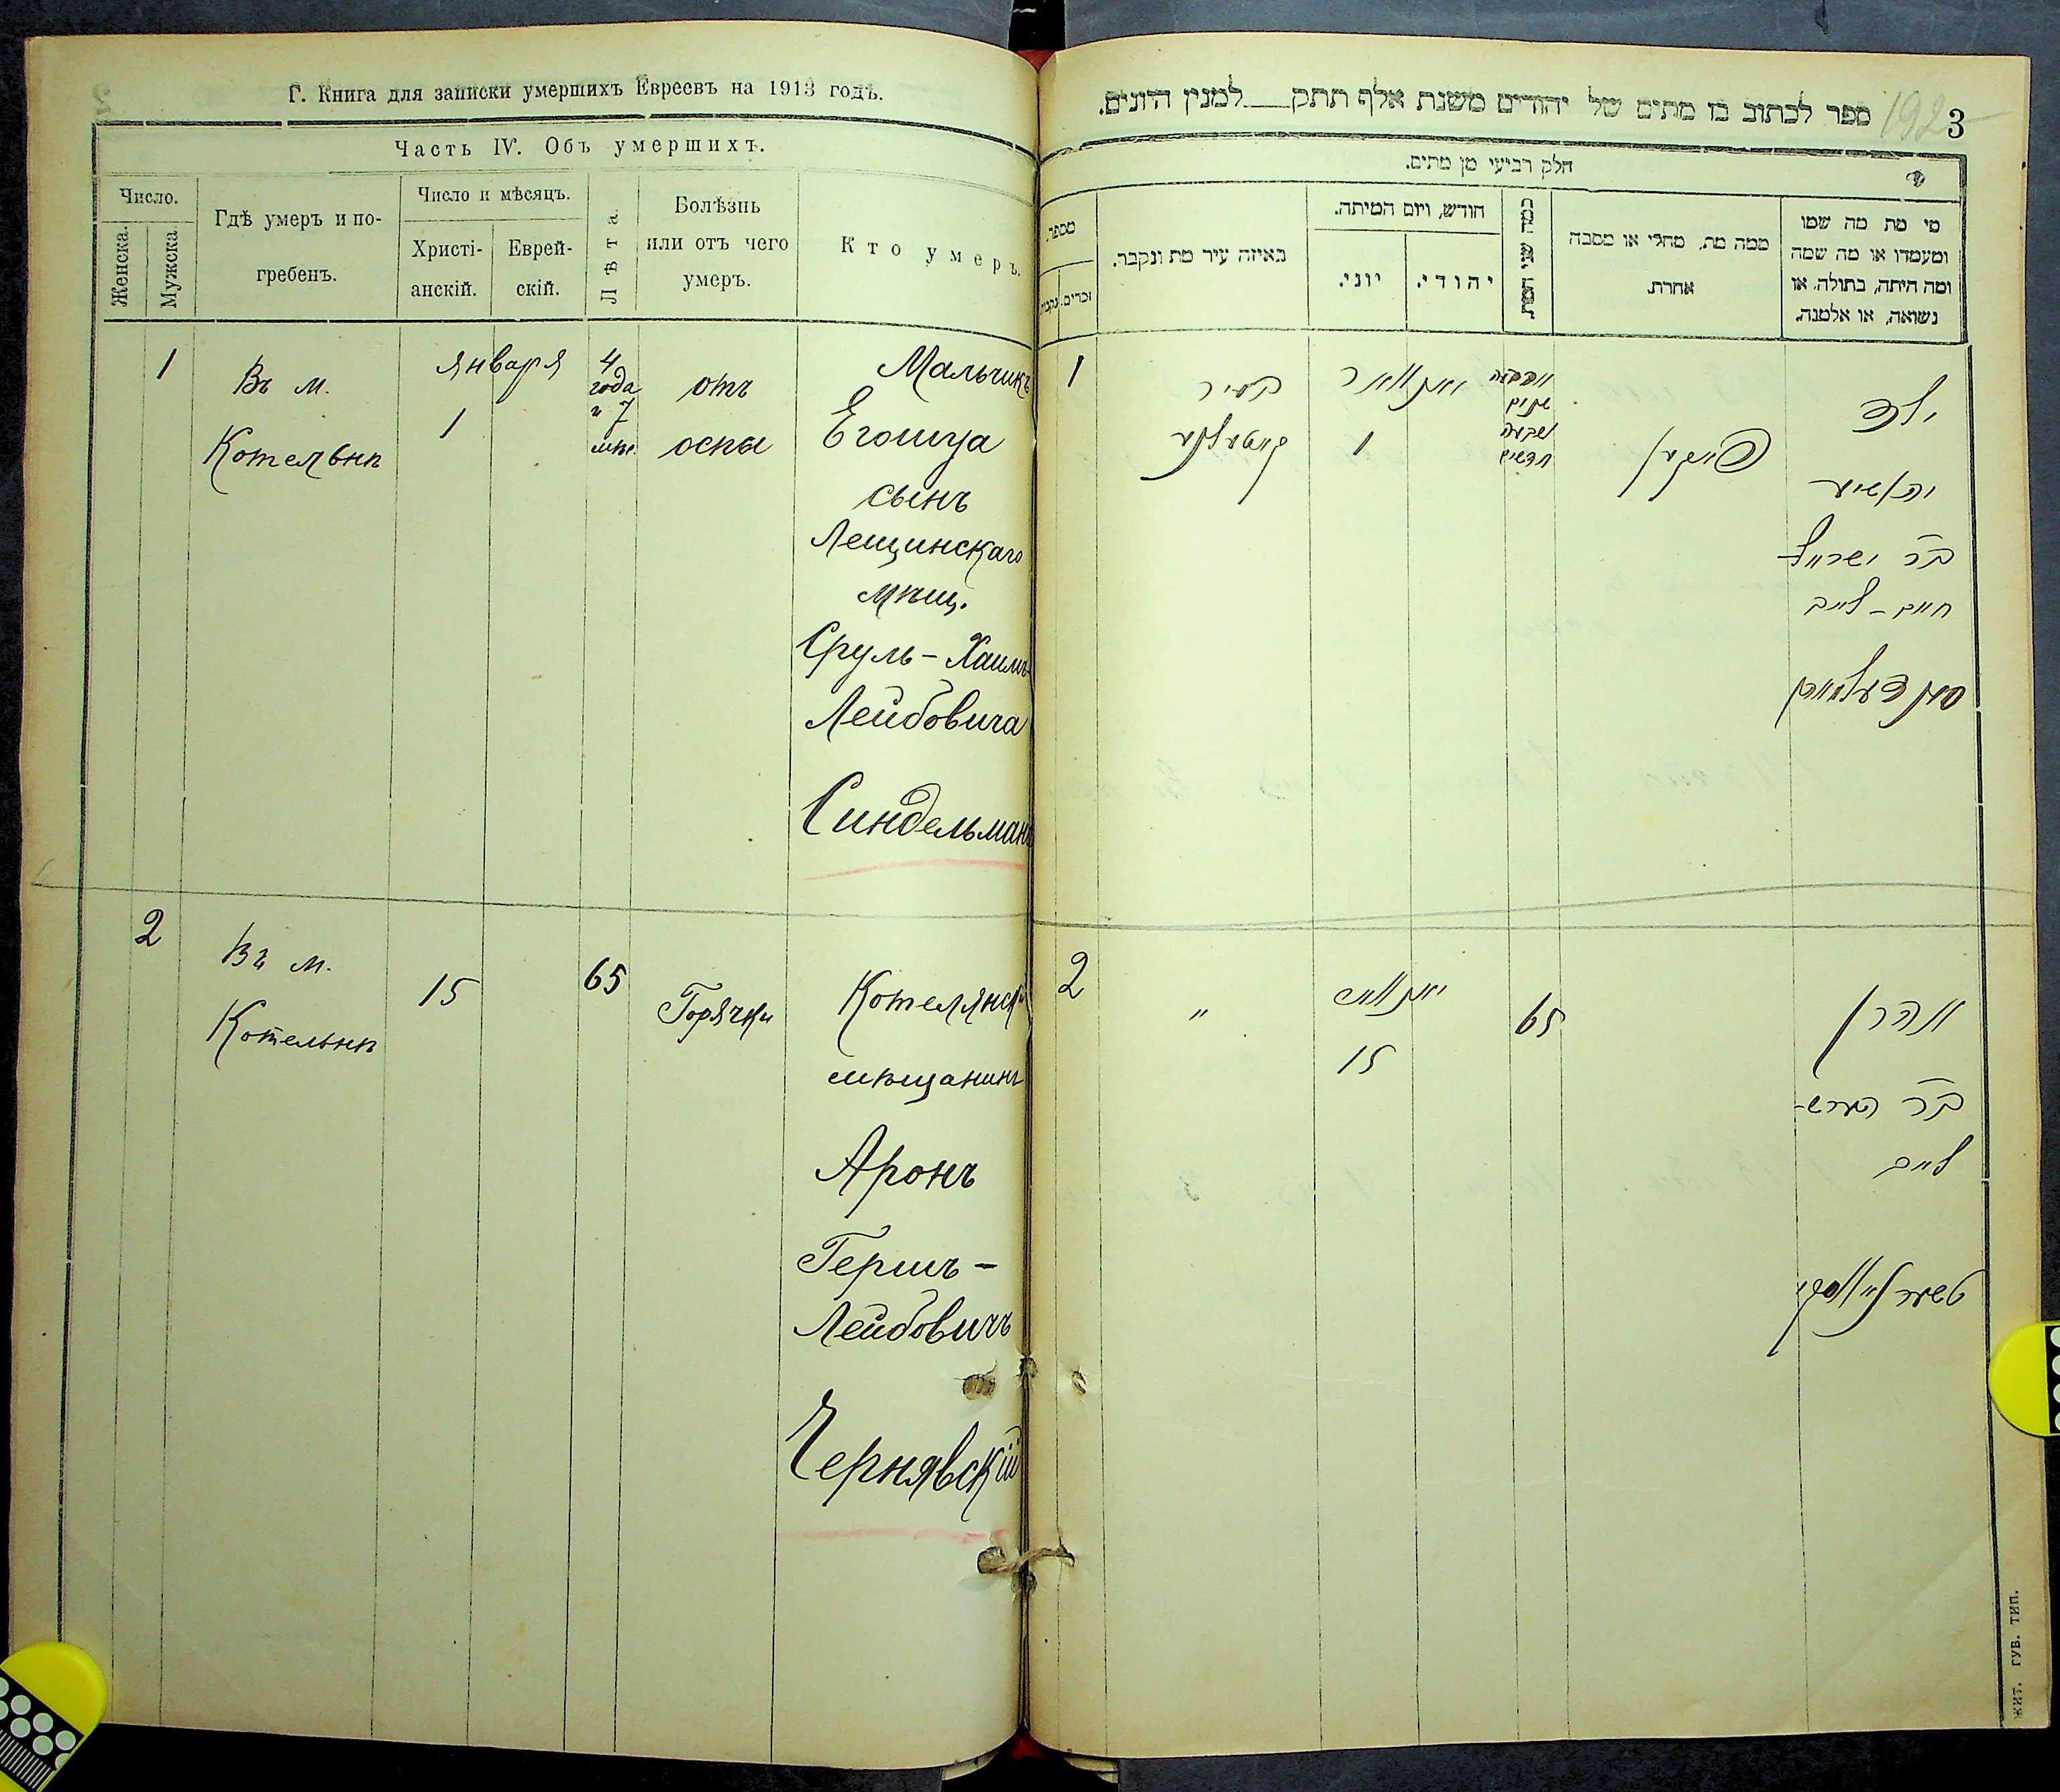 Г. Книга для записки умершихъ Евреевъ на 1913 годъ.
Часть IV. Объ умершихъ.
Число.
Женска.
Мужска.
Гдѣ умеръ и по-
гребенъ.
Число и мѣсяцъ.
Христі-
анскій.
Еврей-
скій.
Лѣта.
Болѣзнь
или отъ чего
умеръ.
Кто умеръ.
1
Въ м.
Котельнѣ
января
1
4
года
и 7
мѣс.
отъ
оспы
Мальчикъ
Егошуа
сынъ
Лещинскаго
мѣщ.
Сруль-Хаимъ-
Лейбовича
Синдельмана
2
Въ м.
Котельнѣ
15
65
Горячки
Котелянскій
мѣщанинъ
Аронъ
Гершъ-
Лейбовичъ
Чернявскій
ספר לכתוב בו מתים של יהודים משנת אלף תתק___למנין היונים.
192
3
חלק רביעי מן מתים.
מספר.
זכרים.
נקבות
באיזה עיר מת ונקבר.
חודש, ויום המיתה.
יוני.
יהודי.
כמה שני המת
ממה מת, מחלי או מסבה
אחרת.
מי מת מה שמו
ומעמדו או מה שמה
ומה היתה, בתולה, או
נשואה, או אלמנה.
1
בעיר
קאטעלניע
יאנואר
1
ארבעה
שנים
ושבעה
חדשים
פאקען
ילד
יהושע
בר ישראל
חיים-לייב
סינדעלמאן
2
"
יאנואר
15
65
אהרן
בר הערש-
לייב
טשערניאווסקי
ЖИТ. ГУБ. ТИП.